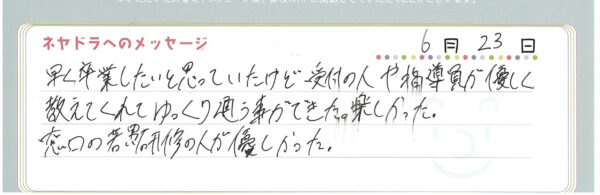 ネヤドラへのメッセージ
6月23日
早く卒業したいと思っていたけど受付の人や指導員が優しく
教えてくれてゆっくり通う事ができた。楽しかった。
窓口の若い研修の人が優しかった。